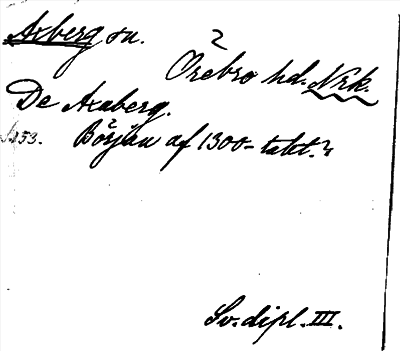 Axberg sn.
2
Örebro hd. Nrk.
De Axaberg.
2
s. 53. Början af 1300-talet.
Sv. dipl. III.